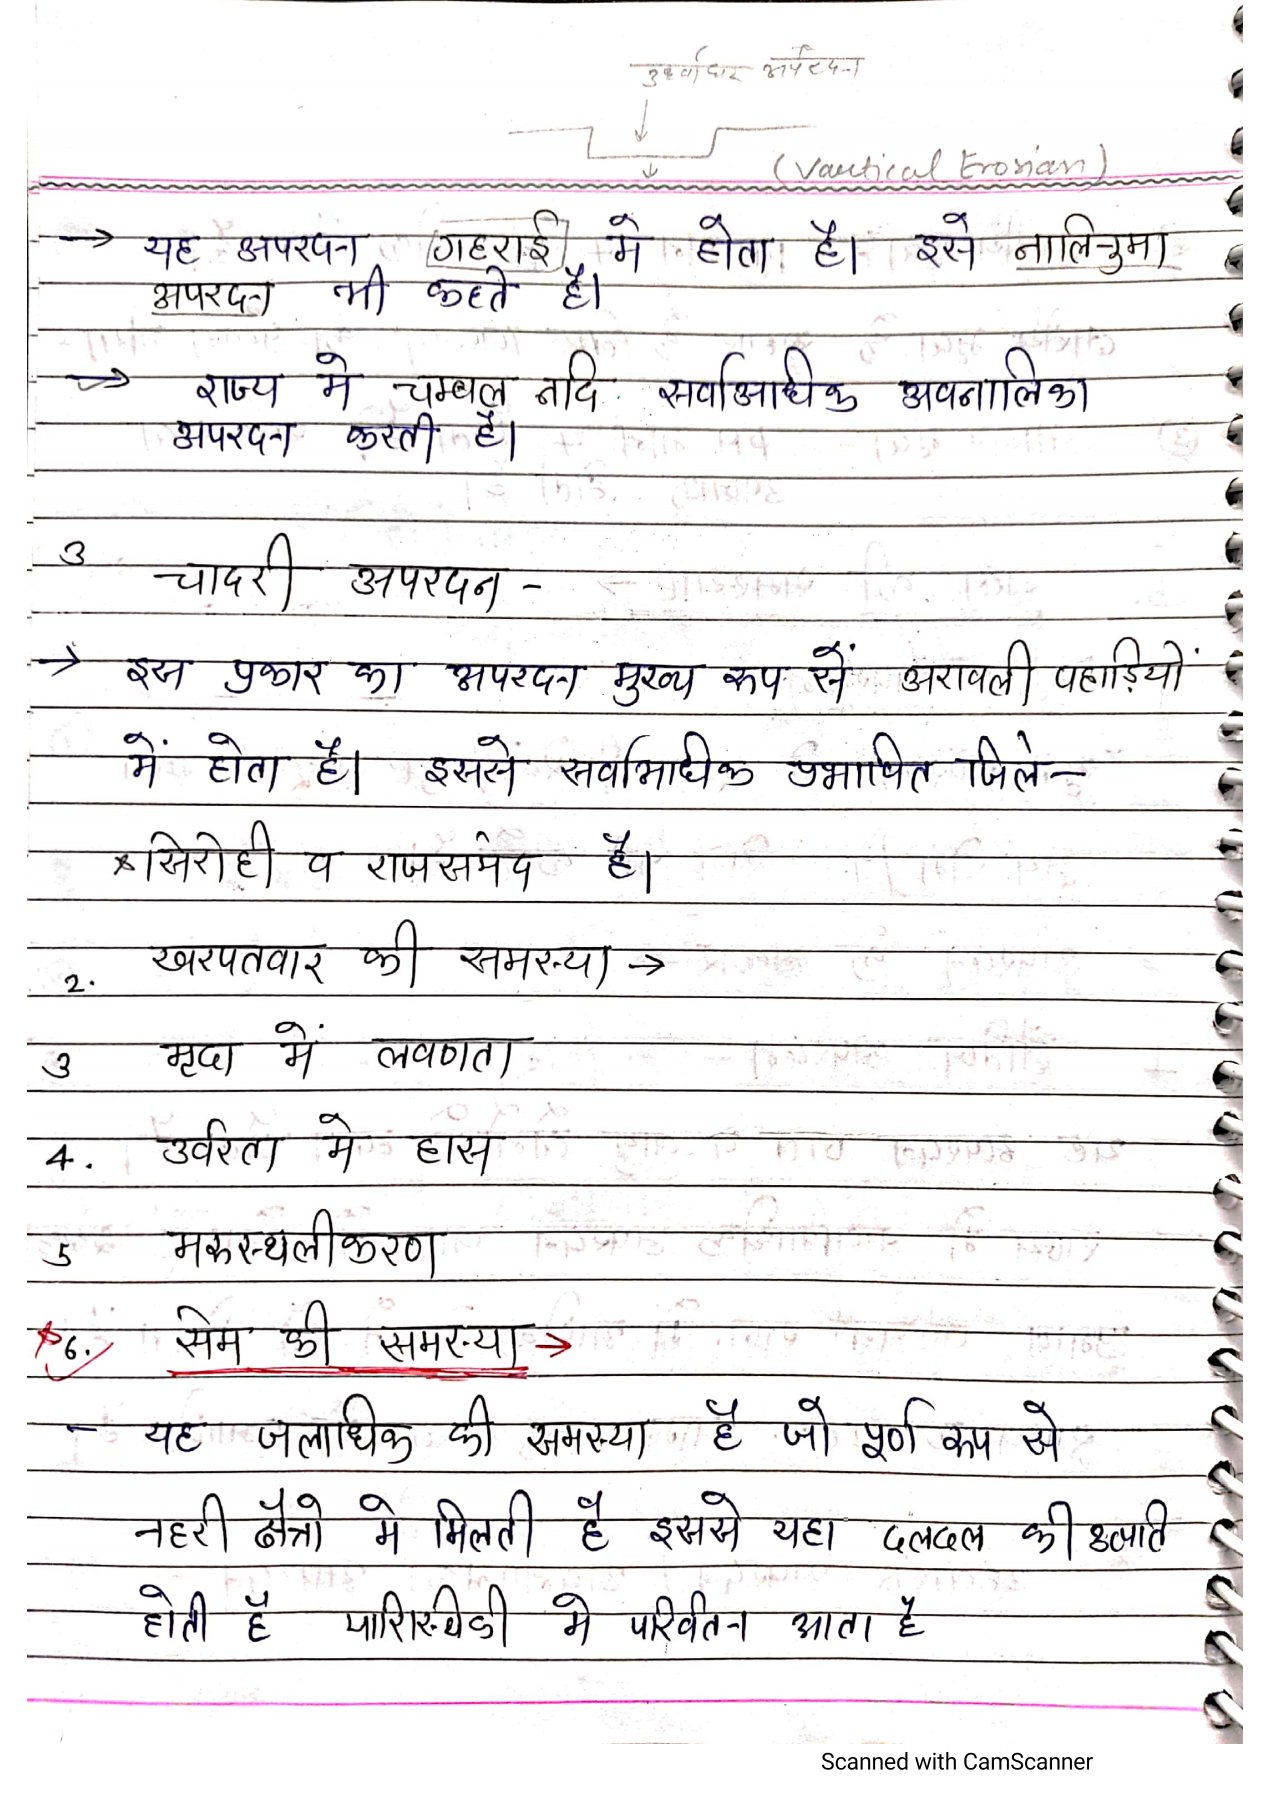 उर्ध्वाधार अपरदन
(Vautical Erosian)
→ यह अपरदन गहराई मे होता है। इसे नालिनुमा
अपरदन भी कहते है।
→ राज्य मे चम्बल नदि सर्वाअधिक अवनालिका
अपरदन करती है।
3 चादरी अपरदन -
→ इस प्रकार का अपरदन मुख्य रूप सें अरावली पहाड़ियों
में होता है। इससे सर्वाधिक प्रभावित जिले -
* सिरोही व राजसमंद है।
2. खरपतवार की समस्या →
3 मृदा में लवणता
4. उर्वरता मे हास
5 मरूस्थलीकरण
* 6. सेम की समस्या →
- यह जलाधिक की समस्या है जो पूर्ण रूप से
नहरी क्षैत्रो मे मिलती है इससे यहा दलदल की उत्पति
होती है पारिस्थिकी मे परिवर्तन आता है
Scanned with CamScanner